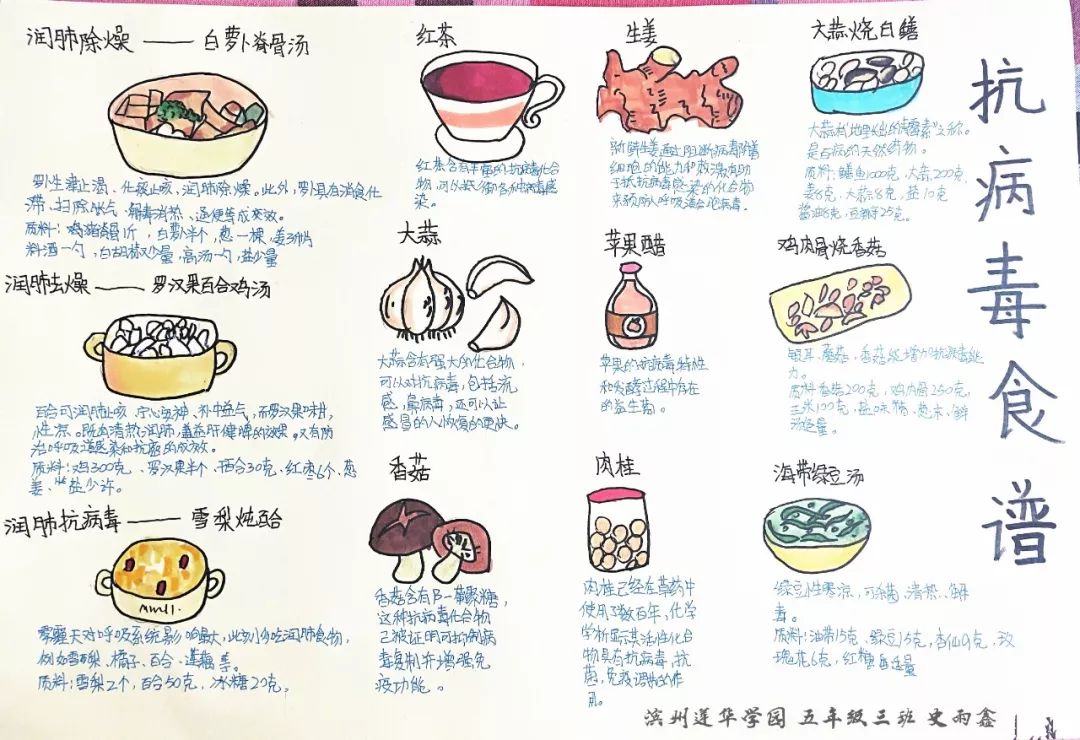 抗病毒食谱
润肺除燥——白萝卜脊骨汤
罗卜生津止渴、化痰止咳,润肺除燥。此外,罗卜具有消食化
滞、扫除胀气、解毒消热、通便等成效。
质料:鸡猪脊骨1斤,白萝卜半个,葱一棵,姜3片
料酒一勺,白胡椒少量,高汤一勺,盐少量
润肺去燥——罗汉果百合鸡汤
百合可润肺止咳、宁心安神、补中益气,而罗汉果味甘,
性凉。既有清热润肺,益肝健脾的效果。又有防
治呼吸道感染和抗癌的成效。
质料:鸡300克、罗汉果半个、百合30克、红枣6个、葱
姜、盐少许。
润肺抗病毒——雪梨炖百合
雾霾天对呼吸系统影响最大,此刻多吃润肺食物,
例如雪梨、橘子、百合、莲藕等。
质料:雪梨2个,百合50克,冰糖20克。
红茶
红茶含有丰富的抗病毒化合
物,可以抵御各种病毒感
染。
大蒜
大蒜含有强大的化合物,
可以对抗病毒,包括流
感,鼻病毒,还可以让
感冒的人恢复的更快。
香菇
香菇含有β-葡聚糖,
这种抗病毒化合物
已被证明可抑制病
毒复制并增强免
疫功能。
生姜
新鲜生姜通过阻断病毒附着
细胞的能力和激活有助
于抗病毒感染的化合物
来预防人呼吸道合胞病毒。
苹果醋
苹果的抗病毒特性
和发酵过程中存在
的益生菌。
肉桂
肉桂已经在草药中
使用了数百年,化学
学析显示其活性化合
物具有抗病毒,抗
菌,免疫调节的作
用。
大蒜烧白鳝
大蒜有“地里长出的青霉素”之称。
是占病的天然药物。
质料:鳝鱼1000克,大蒜200克,
姜8克,大蒜8克,盐10克
酱油8克,豆粉25克。
鸡肉骨烧香菇
银耳、蘑菇、香菇能增力抗病毒能
力。
质料香菇200克,鸡肉骨250克,
玉米100克,盐,味精,葱末,鲜
汤适量。
海带绿豆汤
绿豆性寒凉,可杀菌、清热、解
毒。
质料:海带15克、绿豆15克,杏仙9克,玫
瑰花6克,红糖适量
滨州莲华学园 五年级三班 史雨鑫